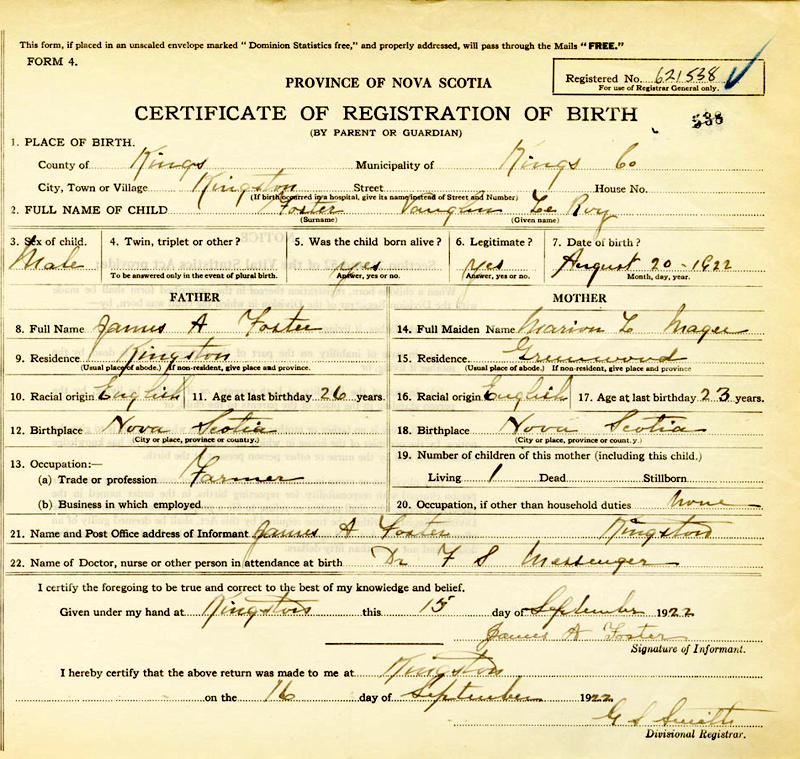 This form, if placed in an unsealed envelope marked "Dominion Statistics free," and properly addressed, will pass through the Mails "FREE."
FORM 4.
Registered No. 621538
For use of Registrar General only.
PROVINCE OF NOVA SCOTIA
CERTIFICATE OF REGISTRATION OF BIRTH
(BY PARENT OR GUARDIAN)
538
1. PLACE OF BIRTH.
County of Kings Municipality of Kings Co
City, Town or Village Kingston Street House No.
(If birth occurred in a hospital, give its name instead of Street and Number)
2. FULL NAME OF CHILD Foster Vaughn Le Roy
(Surname) (Given name)
3. Sex of child. 4. Twin, triplet or other? 5. Was the child born alive? 6. Legitimate? 7. Date of birth?
Male yes yes August 20-1922
To be answered only in the event of plural birth. Answer, yes or no. Answer, yes or no. Month, day, year.
FATHER MOTHER
8. Full Name James A Foster 14. Full Maiden Name Marion L Magee
9. Residence Kingston 15. Residence. Greenwood
(Usual place of abode.) If non-resident, give place and province. (Usual place of abode.) If non-resident, give place and province
10. Racial origin English 11. Age at last birthday 26 years. 16. Racial origin English 17. Age at last birthday 23 years.
12. Birthplace Nova Scotia 18. Birthplace Nova Scotia
(City or place, province or country.) (City or place, province or country.)
13. Occupation:— 19. Number of children of this mother (including this child.)
(a) Trade or profession Farmer Living 1 Dead Stillborn
(b) Business in which employed 20. Occupation, if other than household duties none
21. Name and Post Office address of Informant James A Foster Kingston
22. Name of Doctor, nurse or other person in attendance at birth Dr F S Messenger
I certify the foregoing to be true and correct to the best of my knowledge and belief.
Given under my hand at Kingston this 15 day of September 1922
James A Foster
Signature of Informant.
I hereby certify that the above return was made to me at Kingston
on the 16 day of September 1922
G S Smith
Divisional Registrar.